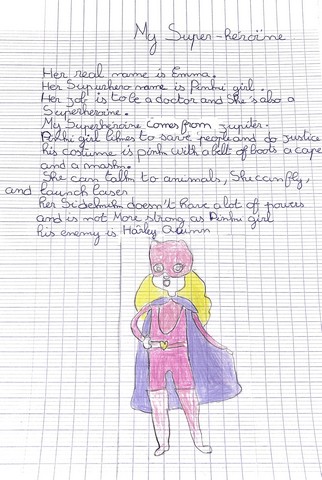 My Super-héroïne
Her real name is Emma.
Her Superhero name is Pinki girl.
Her job is to be a doctor and She's also a
Superheroine.
My Superheroine comes from Jupiter.
Pinki girl likes to save people and do justice
his costume is pink with a belt of boots a cape
and a mask.
She can talk to animals, She can fly,
and launch laiser
her Sidekick doesn't have a lot of powers
and is not More strong as Pinki girl
his enemy is Harley Quinn